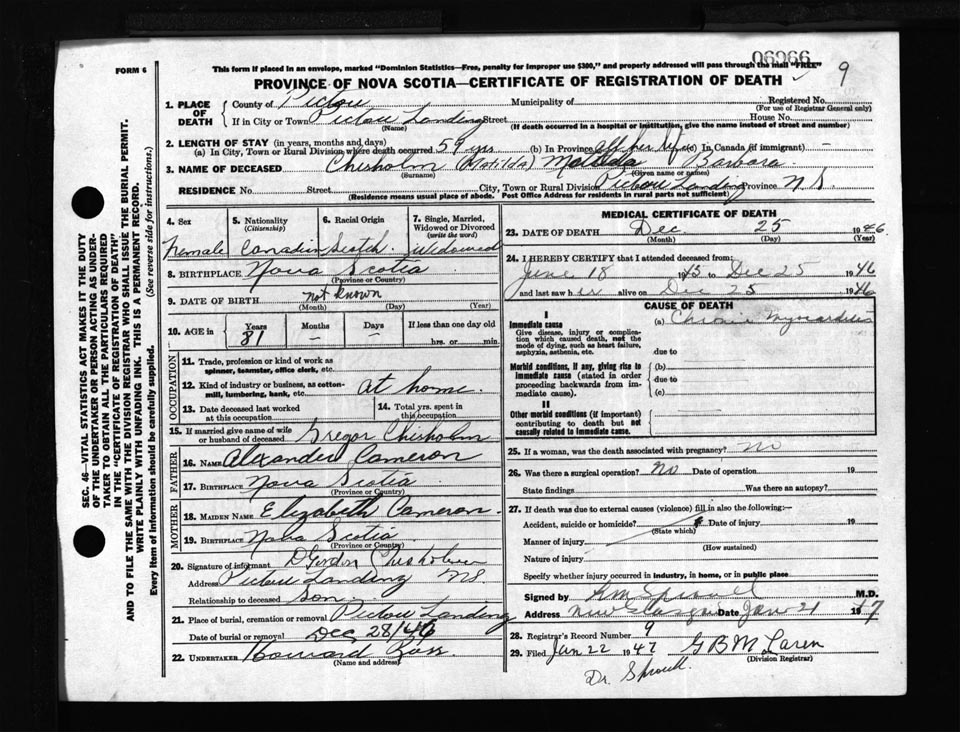 06966
FORM 6
This form if placed in an envelope, marked "Dominion Statistics—Free, penalty for improper use $300," and properly addressed will pass through the mail "FREE"
9
PROVINCE OF NOVA SCOTIA—CERTIFICATE OF REGISTRATION OF DEATH
1. PLACE OF DEATH
County of Pictou Municipality of Registered No.
(For use of Registrar General only)
If in City or Town Pictou Landing Street House No.
(Name) (If death occurred in a hospital or institution, give the name instead of street and number)
2. LENGTH OF STAY (in years, months and days)
(a) In City, Town or Rural Division where death occurred 59 yrs (b) In Province All her life (c) In Canada (if immigrant) —
3. NAME OF DECEASED Chisholm (Matilda) Matilda Barbara
(Surname) (Given name or names)
RESIDENCE No. Street City, Town or Rural Division Pictou Landing Province N.S.
(Residence means usual place of abode. Post Office Address for residents in rural parts not sufficient)
4. Sex
Female
5. Nationality
(Citizenship)
Canadian
6. Racial Origin
Scotch
7. Single, Married, Widowed or Divorced
(write the word)
Widowed
8. BIRTHPLACE Nova Scotia
(Province or Country)
9. DATE OF BIRTH not known
(Month) (Day) (Year)
10. AGE in
Years Months Days If less than one day old
81 — — hrs. or min.
OCCUPATION
11. Trade, profession or kind of work as spinner, teamster, office clerk, etc.
12. Kind of industry or business, as cotton-mill, lumbering, bank, etc. at home.
13. Date deceased last worked at this occupation
14. Total yrs. spent in this occupation
15. If married give name of wife or husband of deceased Gregor Chisholm
FATHER
16. NAME Alexander Cameron
17. BIRTHPLACE Nova Scotia
(Province or Country)
MOTHER
18. MAIDEN NAME Elizabeth Cameron.
19. BIRTHPLACE Nova Scotia
(Province or Country)
20. Signature of informant D Gordon Chisholm
Address Pictou Landing NS
Relationship to deceased Son.
21. Place of burial, cremation or removal Pictou Landing
Date of burial or removal Dec 28/46
22. UNDERTAKER Howard Ross.
(Name and address)
MEDICAL CERTIFICATE OF DEATH
23. DATE OF DEATH Dec 25 1946
(Month) (Day) (Year)
24. I HEREBY CERTIFY that I attended deceased from:
June 18 1945 to Dec 25 1946
and last saw her alive on Dec 25 1946
CAUSE OF DEATH
I
Immediate cause
Give disease, injury or complication which caused death, not the mode of dying, such as heart failure, asphyxia, asthenia, etc.
(a) Chronic Myocarditis
due to
Morbid conditions, if any, giving rise to immediate cause (stated in order proceeding backwards from immediate cause).
(b)
due to
(c)
II
Other morbid conditions (if important) contributing to death but not causally related to immediate cause.
25. If a woman, was the death associated with pregnancy? no
26. Was there a surgical operation? no Date of operation 19
State findings Was there an autopsy?
27. If death was due to external causes (violence) fill in also the following:—
Accident, suicide or homicide? Date of injury 19
(State which)
Manner of injury
(How sustained)
Nature of injury
Specify whether injury occurred in industry, in home, or in public place
Signed by M.D.
Address New Glasgow Date Jan 21 1947
28. Registrar's Record Number 9
29. Filed Jan 22 1947 G B McLaren
(Division Registrar)
Dr. Sproull
SEC. 46—VITAL STATISTICS ACT MAKES IT THE DUTY
OF THE UNDERTAKER OR PERSON ACTING AS UNDER-
TAKER TO OBTAIN ALL THE PARTICULARS REQUIRED
IN THE "CERTIFICATE OF REGISTRATION OF DEATH"
AND TO FILE THE SAME WITH THE DIVISION REGISTRAR WHO SHALL ISSUE THE BURIAL PERMIT.
WRITE PLAINLY WITH UNFADING INK. THIS IS A PERMANENT RECORD.
Every item of information should be carefully supplied. (See reverse side for instructions.)